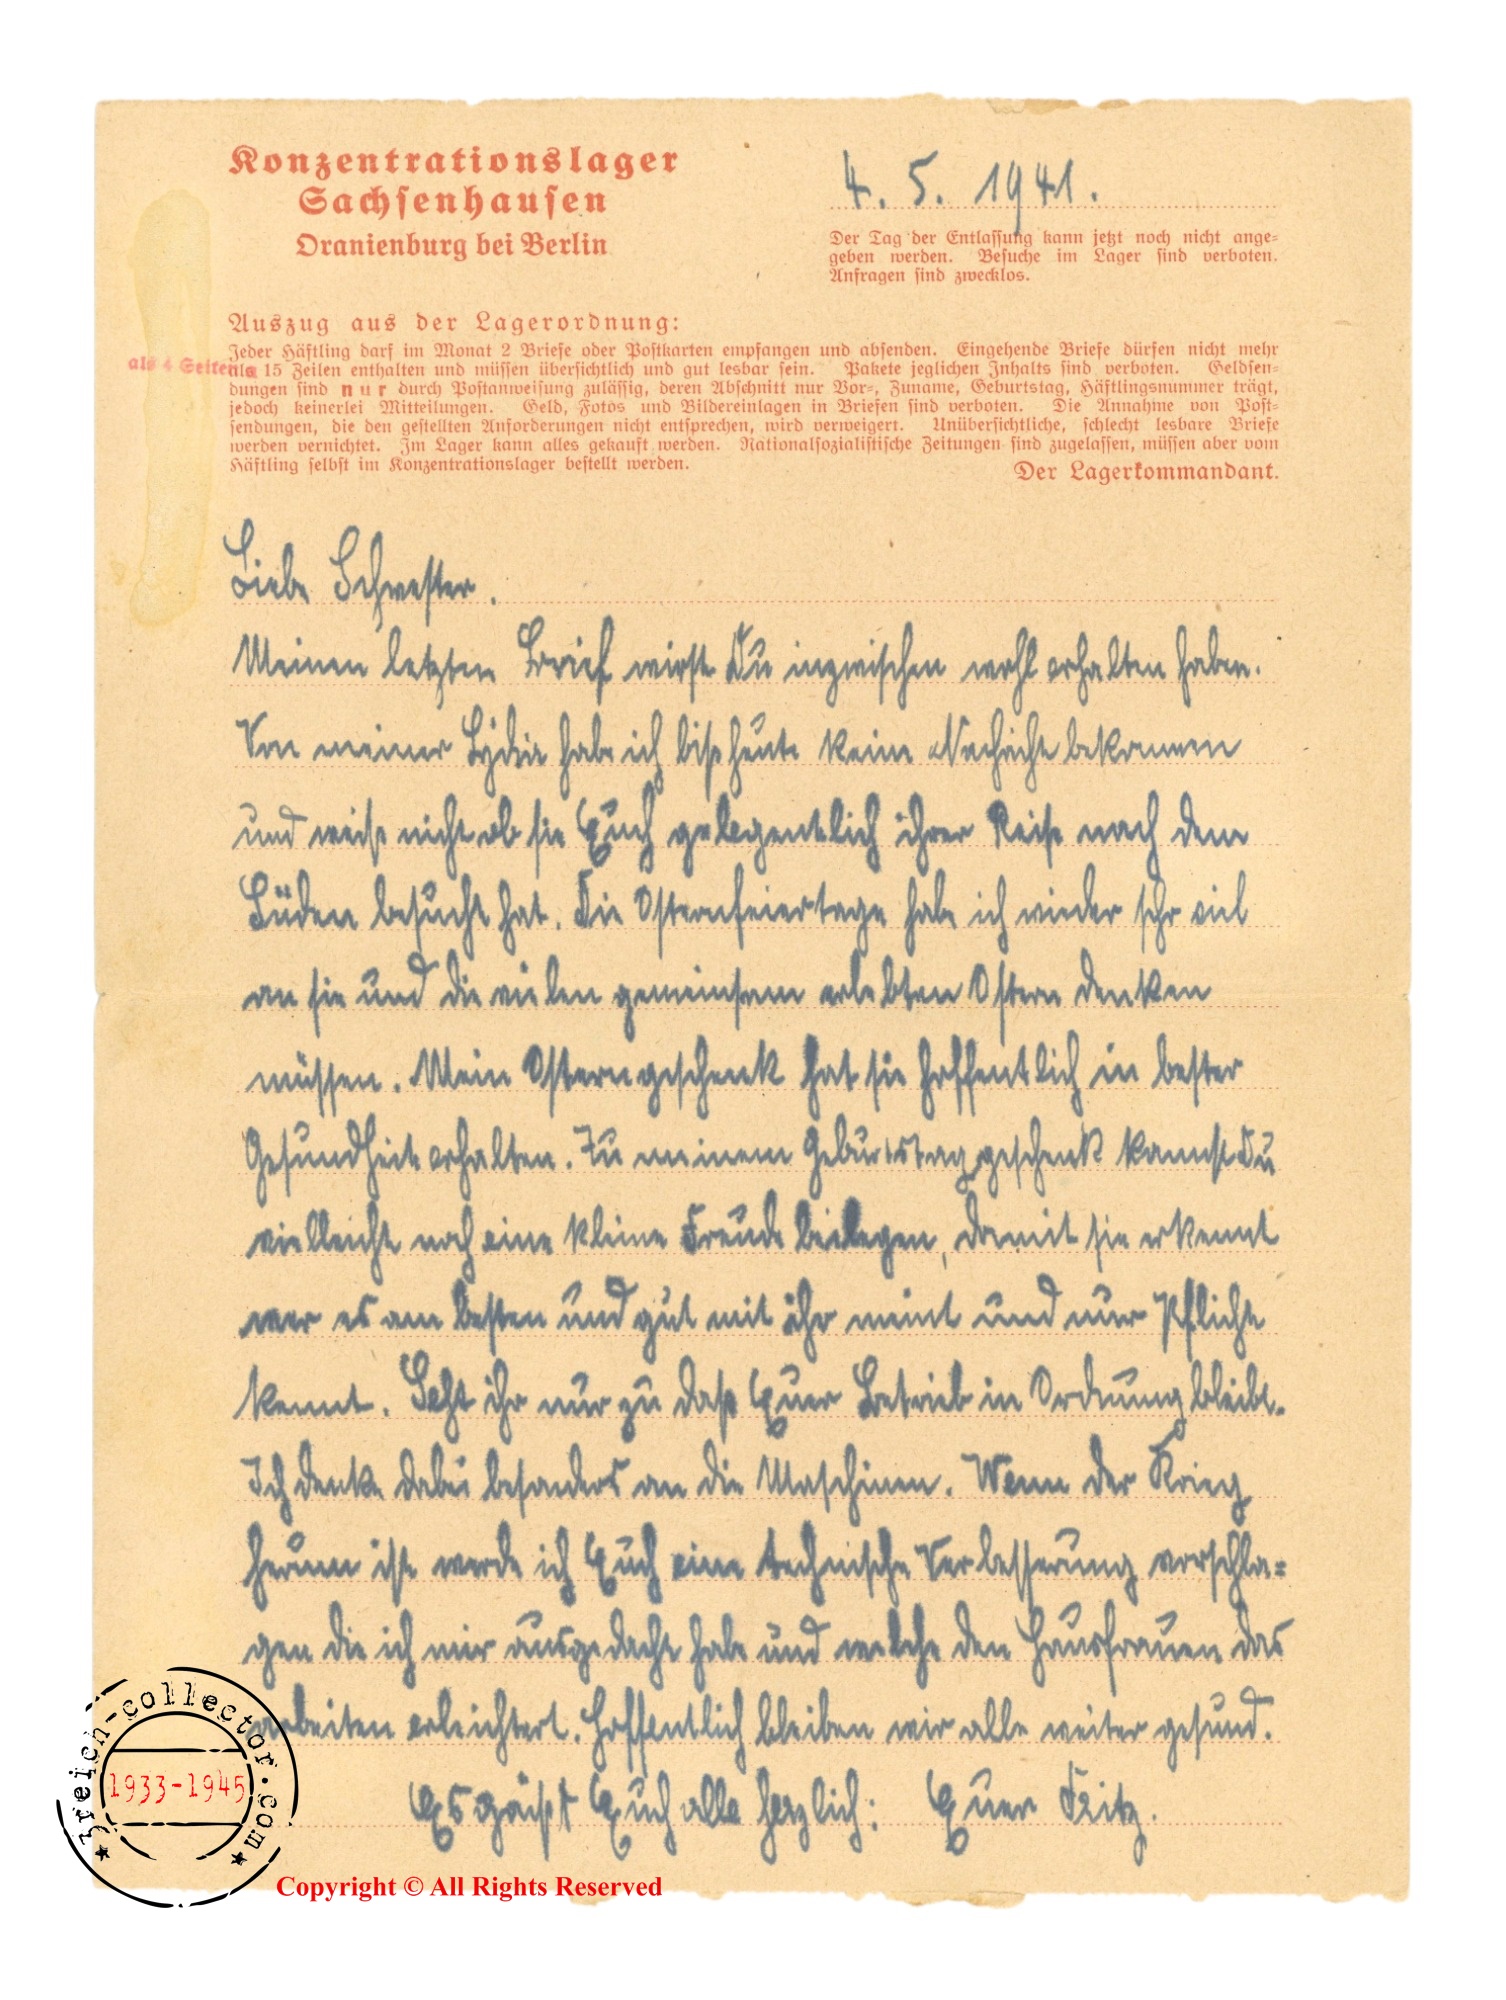 Konzentrationslager
Sachsenhausen
Oranienburg bei Berlin
4. 5. 1941.
Der Tag der Entlassung kann jetzt noch nicht ange-
geben werden. Besuche im Lager sind verboten.
Anfragen sind zwecklos.
Auszug aus der Lagerordnung:
Jeder Häftling darf im Monat 2 Briefe oder Postkarten empfangen und absenden. Eingehende Briefe dürfen nicht mehr
als 4 Seiten à
als 15 Zeilen enthalten und müssen übersichtlich und gut lesbar sein. Pakete jeglichen Inhalts sind verboten. Geldsen-
dungen sind nur durch Postanweisung zulässig, deren Abschnitt nur Vor-, Zuname, Geburtstag, Häftlingsnummer trägt,
jedoch keinerlei Mitteilungen. Geld, Fotos und Bildereinlagen in Briefen sind verboten. Die Annahme von Post-
sendungen, die den gestellten Anforderungen nicht entsprechen, wird verweigert. Unübersichtliche, schlecht lesbare Briefe
werden vernichtet. Im Lager kann alles gekauft werden. Nationalsozialistische Zeitungen sind zugelassen, müssen aber vom
Häftling selbst im Konzentrationslager bestellt werden.
Der Lagerkommandant.
Liebe Schwester.
Meinen letzten Brief wirst Du inzwischen wohl erhalten haben.
Von meiner Lydia habe ich bis heute keine Nachricht bekommen
und weiß nicht ob sie Euch gelegentlich ihrer Reise nach dem
Süden besucht hat. Die Osternfeiertage habe ich wieder sehr viel
an sie und die vielen gemeinsam erlebten Ostern denken
müssen. Mein Osterngeschenk hat sie hoffentlich in bester
Gesundheit erhalten. Zu meinem Geburtstaggeschenk kannst Du
vielleicht noch eine kleine Freude beilegen, damit sie erkennt
wer es am besten und gut mit ihr meint und nur Pflicht
kennt. Seht ihr nur zu daß Euer Betrieb in Ordnung bleibt.
Ich denke dabei besonders an die Maschinen. Wenn der Krieg
herum ist werde ich Euch eine technische Verbesserung vorschla=
gen die ich mir ausgedacht habe und welche den Hausfrauen das
arbeiten erleichtert. Hoffentlich bleiben wir alle weiter gesund.
Es grüßt Euch alle herzlich: Euer Fritz.
3reich-collector.com
1933-1945
Copyright © All Rights Reserved